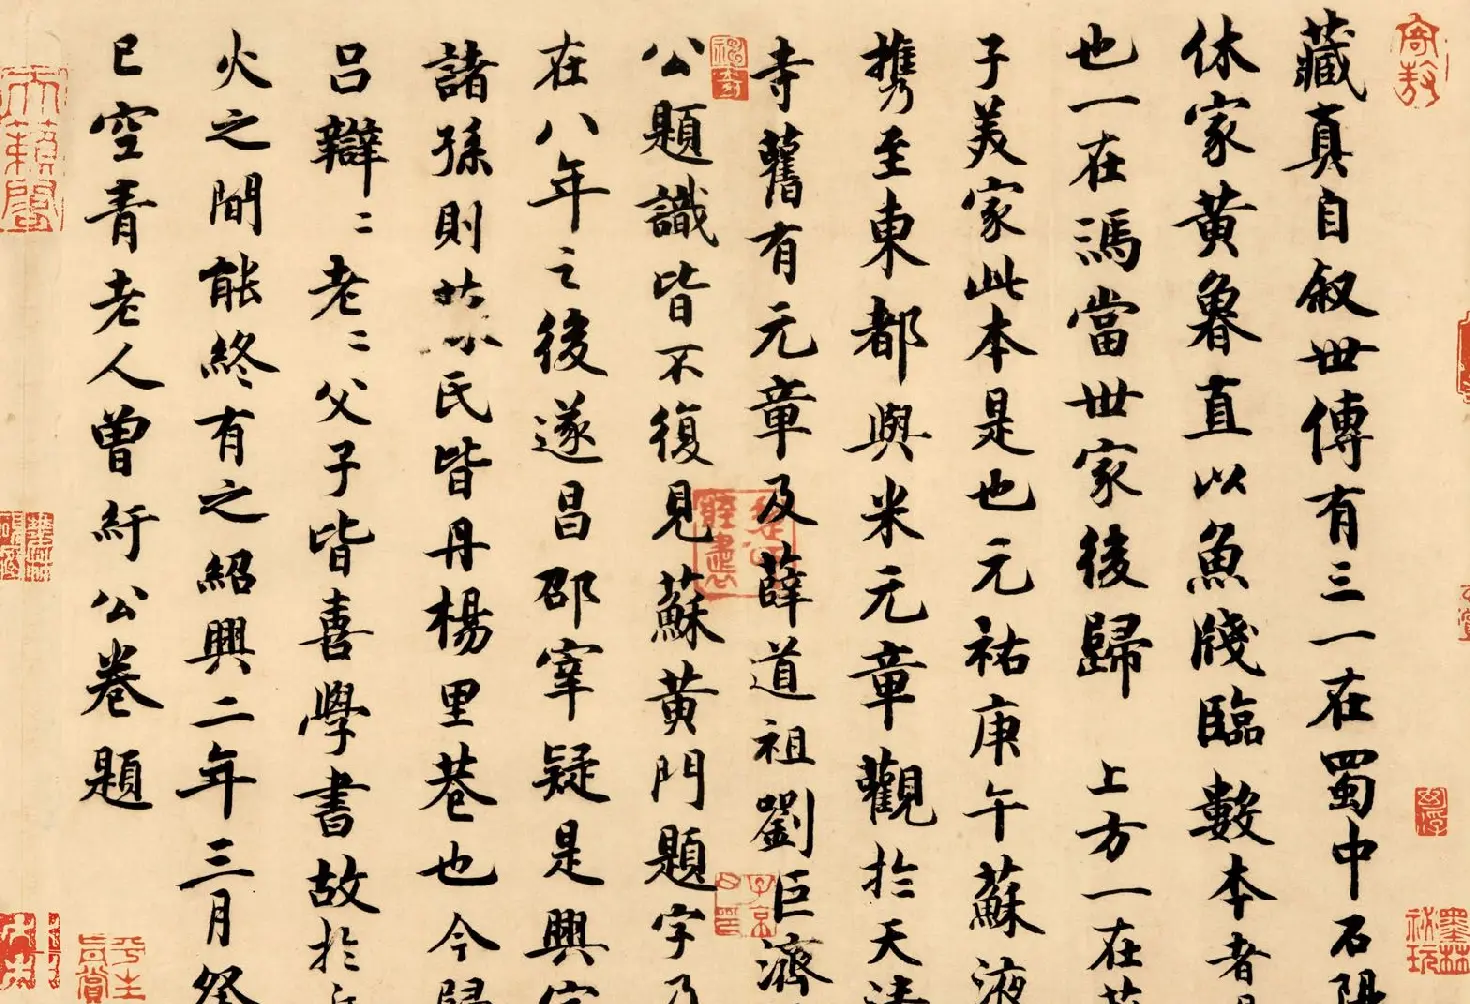 藏真自叙世傳有三一在蜀中石陽
休家黄魯直以魚牋臨數本者
也一在馮當世家後歸 上方一在蘇
子美家此本是也元祐庚午蘇液
携至東都與米元章觀於天清
寺舊有元章及薛道祖劉巨濟
公題識皆不復見蘇黄門題字乃
在八年之後遂昌邵宰疑是興宗
諸孫則 氏皆丹楊里巷也今歸
吕辯二老二父子皆喜學書故於兵
火之間能終有之紹興二年三月癸
巳空青老人曾紆公卷題